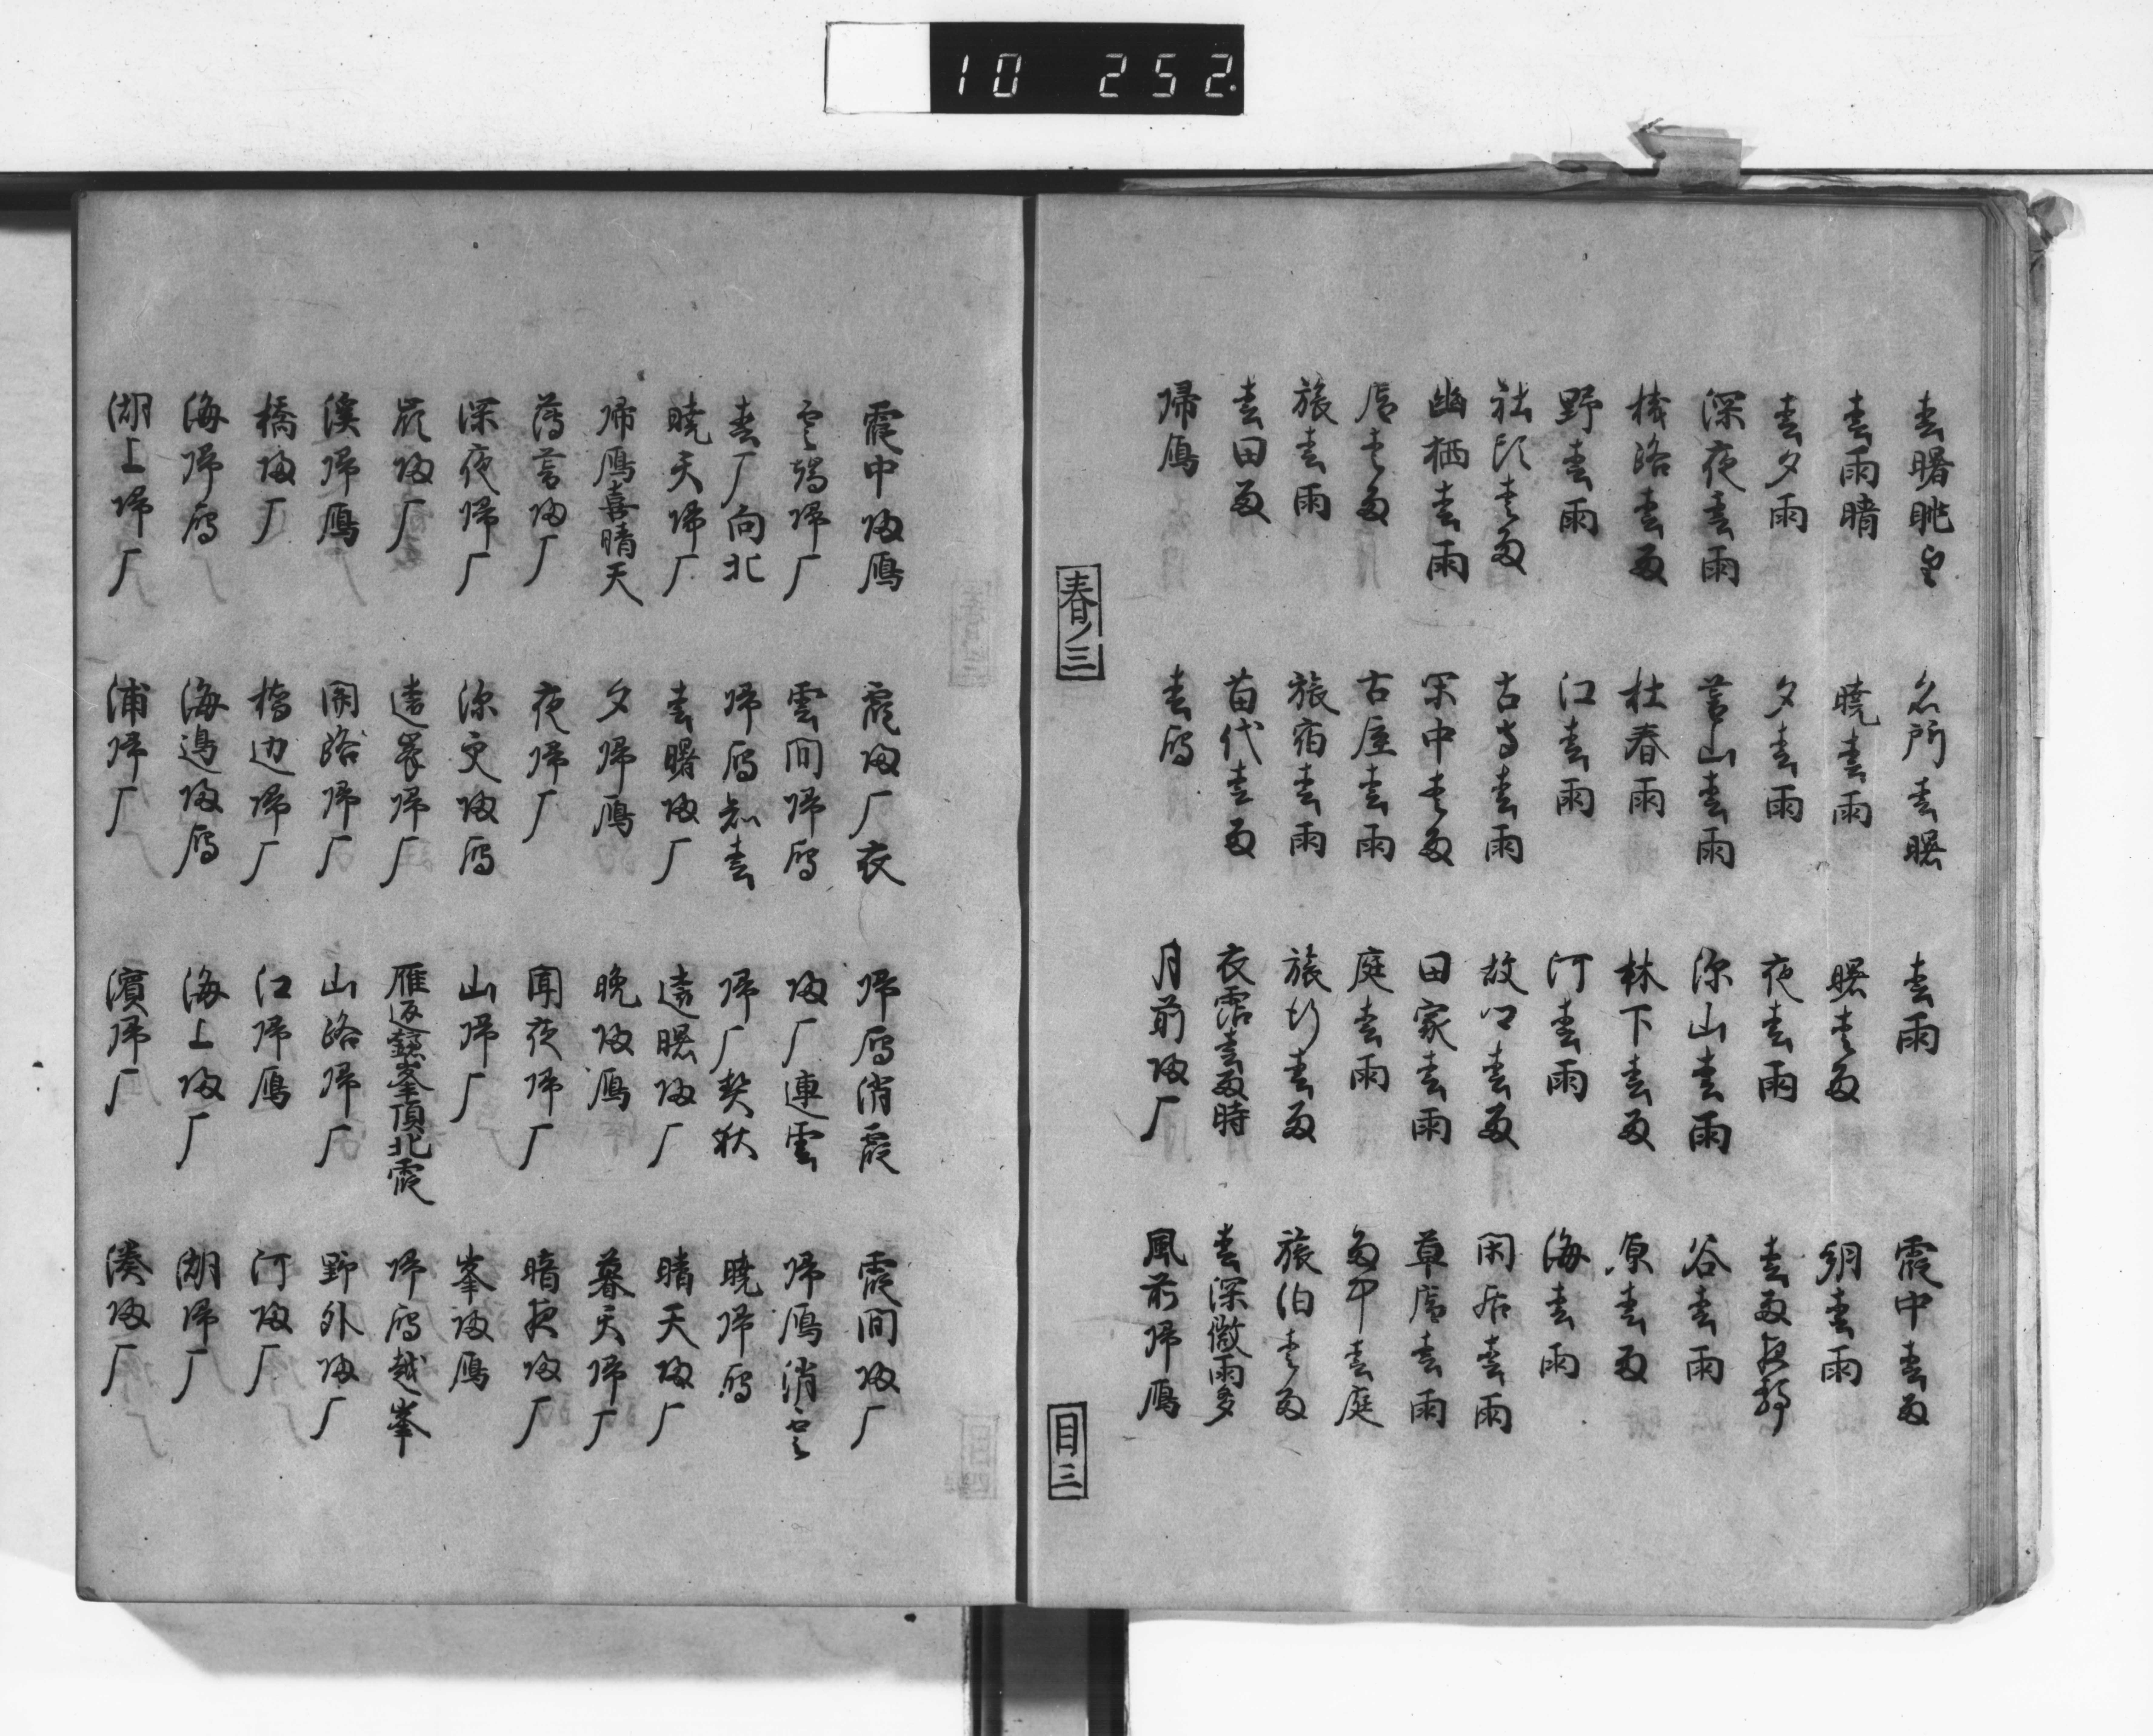 10 252
春曙眺望 名所春曙 春雨 霞中春雨
春雨晴 暁春雨 曙春雨 朝春雨
春夕雨 夕春雨 夜春雨 春雨夜静
深夜春雨 暮山春雨 深山春雨 谷春雨
桟路春雨 杜春雨 林下春雨 原春雨
野春雨 江春雨 河春雨 海春雨
社頭春雨 古寺春雨 故郷春雨 閑居春雨
幽栖春雨 閑中春雨 田家春雨 草庵春雨
庵春雨 古屋春雨 庭春雨 雨中春庭
旅春雨 旅宿春雨 旅行春雨 旅泊春雨
春田雨 苗代春雨 衣霑春雨時 春深微雨多
帰鴈 春鴈 月前帰厂 風前帰鴈
春ノ三
目三
霞中帰鴈 霞帰厂衣 帰鴈消霞 霞間帰厂
雲端帰厂 雲間帰鴈 帰厂連雲 帰鴈消雲
春厂向北 帰鴈知春 帰厂契秋 暁帰鴈
暁天帰厂 春曙帰厂 遠曙帰厂 晴天帰厂
帰鴈喜晴天 夕帰鴈 晩帰鴈 暮天帰厂
薄暮帰厂 夜帰厂 聞夜帰厂 暗夜帰厂
深夜帰厂 深更帰鴈 山帰厂 峯帰鴈
嶺帰厂 遠峯帰厂 雁返鑪峯頂北霞 帰鴈越峯
渓帰鴈 関路帰厂 山路帰厂 野外帰厂
橋帰厂 橋辺帰厂 江帰鴈 河帰厂
海帰鴈 海邊帰鴈 海上帰厂 湖帰厂
湖上帰厂 浦帰厂 濱帰厂 湊帰厂